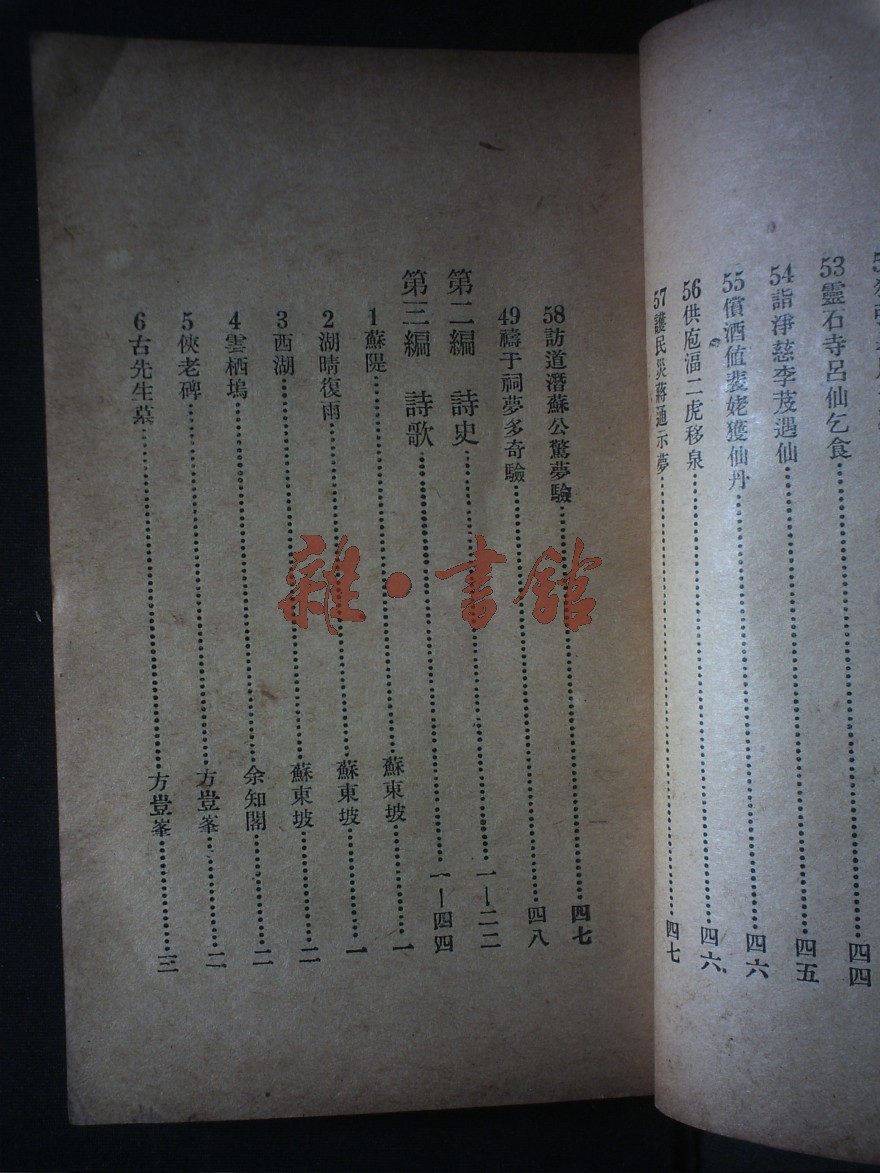 53靈石寺呂仙乞食……四四
54詣淨慈李芨遇仙……四五
55償酒值裴姥獲仙丹……四六
56供庖湢二虎移泉……四六
57護民災蔣通示夢……四七
58訪道潛蘇公驚夢驗……四七
49禱于祠夢多奇驗……四八
第二編 詩史……一—二二
第三編 詩歌……一—四四
1蘇隄……蘇東坡……一
2湖晴復雨……蘇東坡……一
3西湖……蘇東坡……二
4雲栖塢……余知閣……二
5俠老碑……方豈峯……二
6古先生墓……方豈峯……三
雜·書館